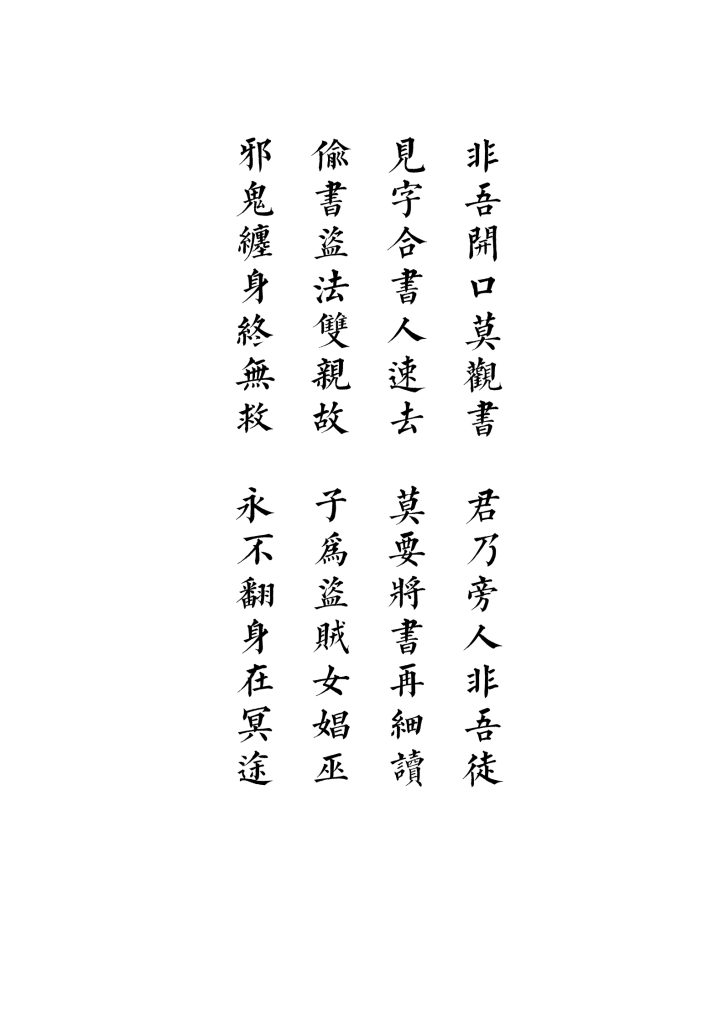 非吾開口莫觀書 君乃旁人非吾徒
見字合書人速去 莫要將書再細讀
偷書盜法雙親故 子為盜賊女娼巫
邪鬼纏身終無救 永不翻身在冥途